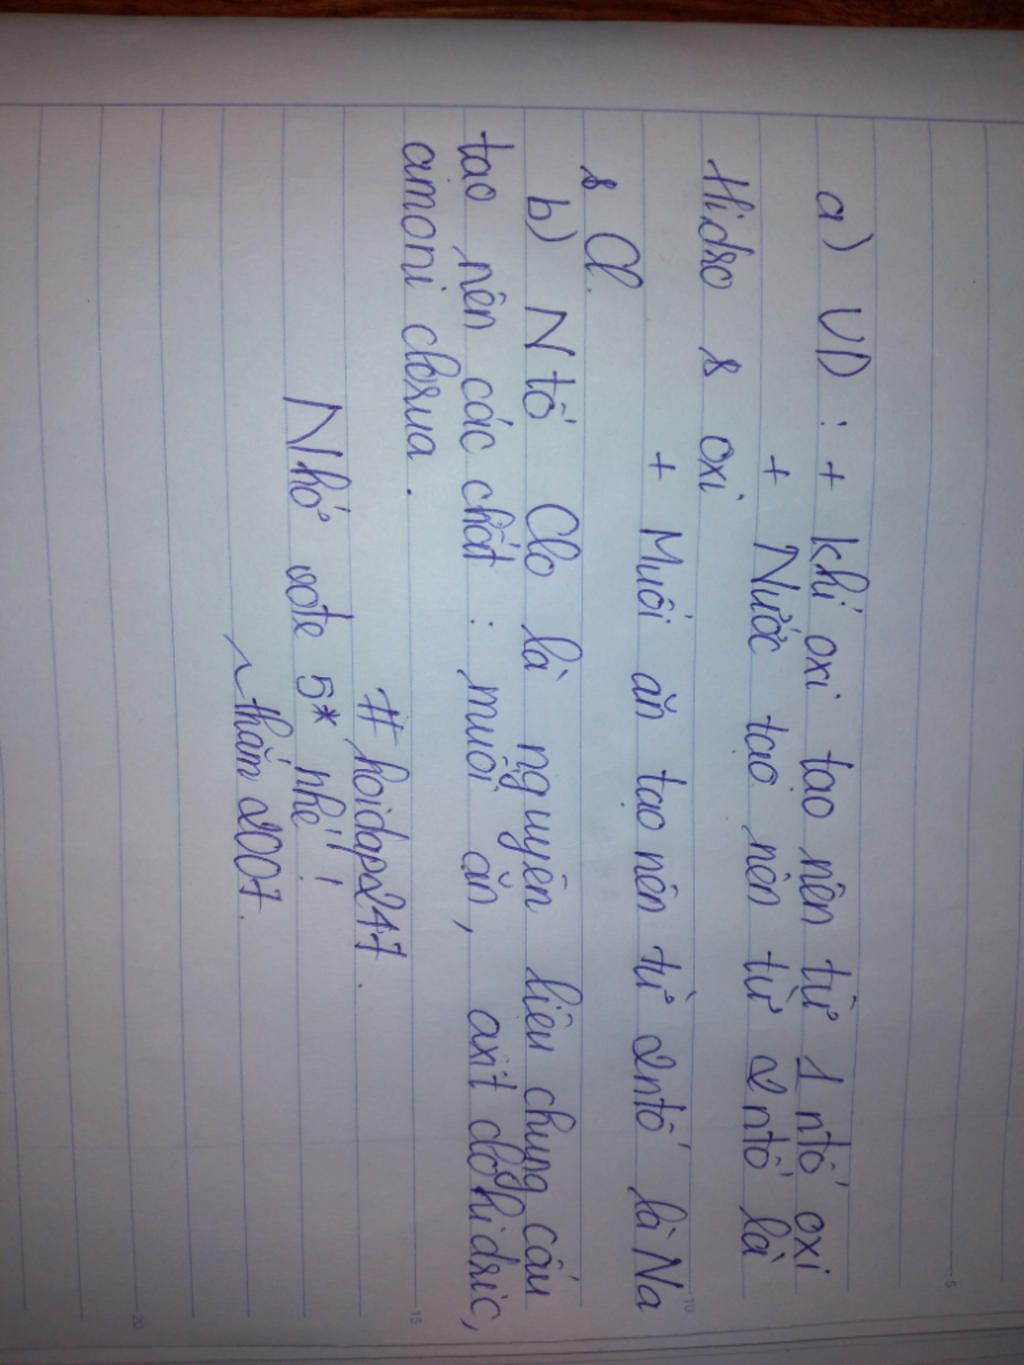 a) VD : + khí oxi tạo nên từ 1 ntố oxi
+ Nước tạo nên từ 2 ntố là
Hidro & oxi
+ Muối ăn tạo nên từ 2 ntố là Na
& Cl.
b) N tố Clo là nguyên liệu chung cấu
tạo nên các chất : muối ăn, axit clohidric,
amoni clorua .
# hoidap247 .
Nhớ vote 5* nhé !
~ thắm 2007.
5
10
15
20